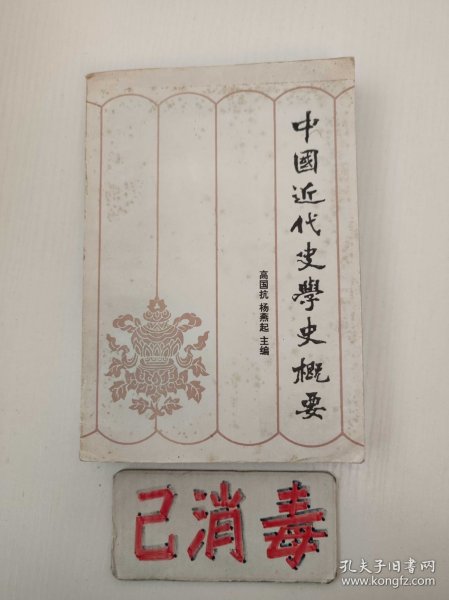 中國近代史學史概要
高国抗 杨燕起 主编
已消毒
孔夫子旧书网
www.kongfz.com